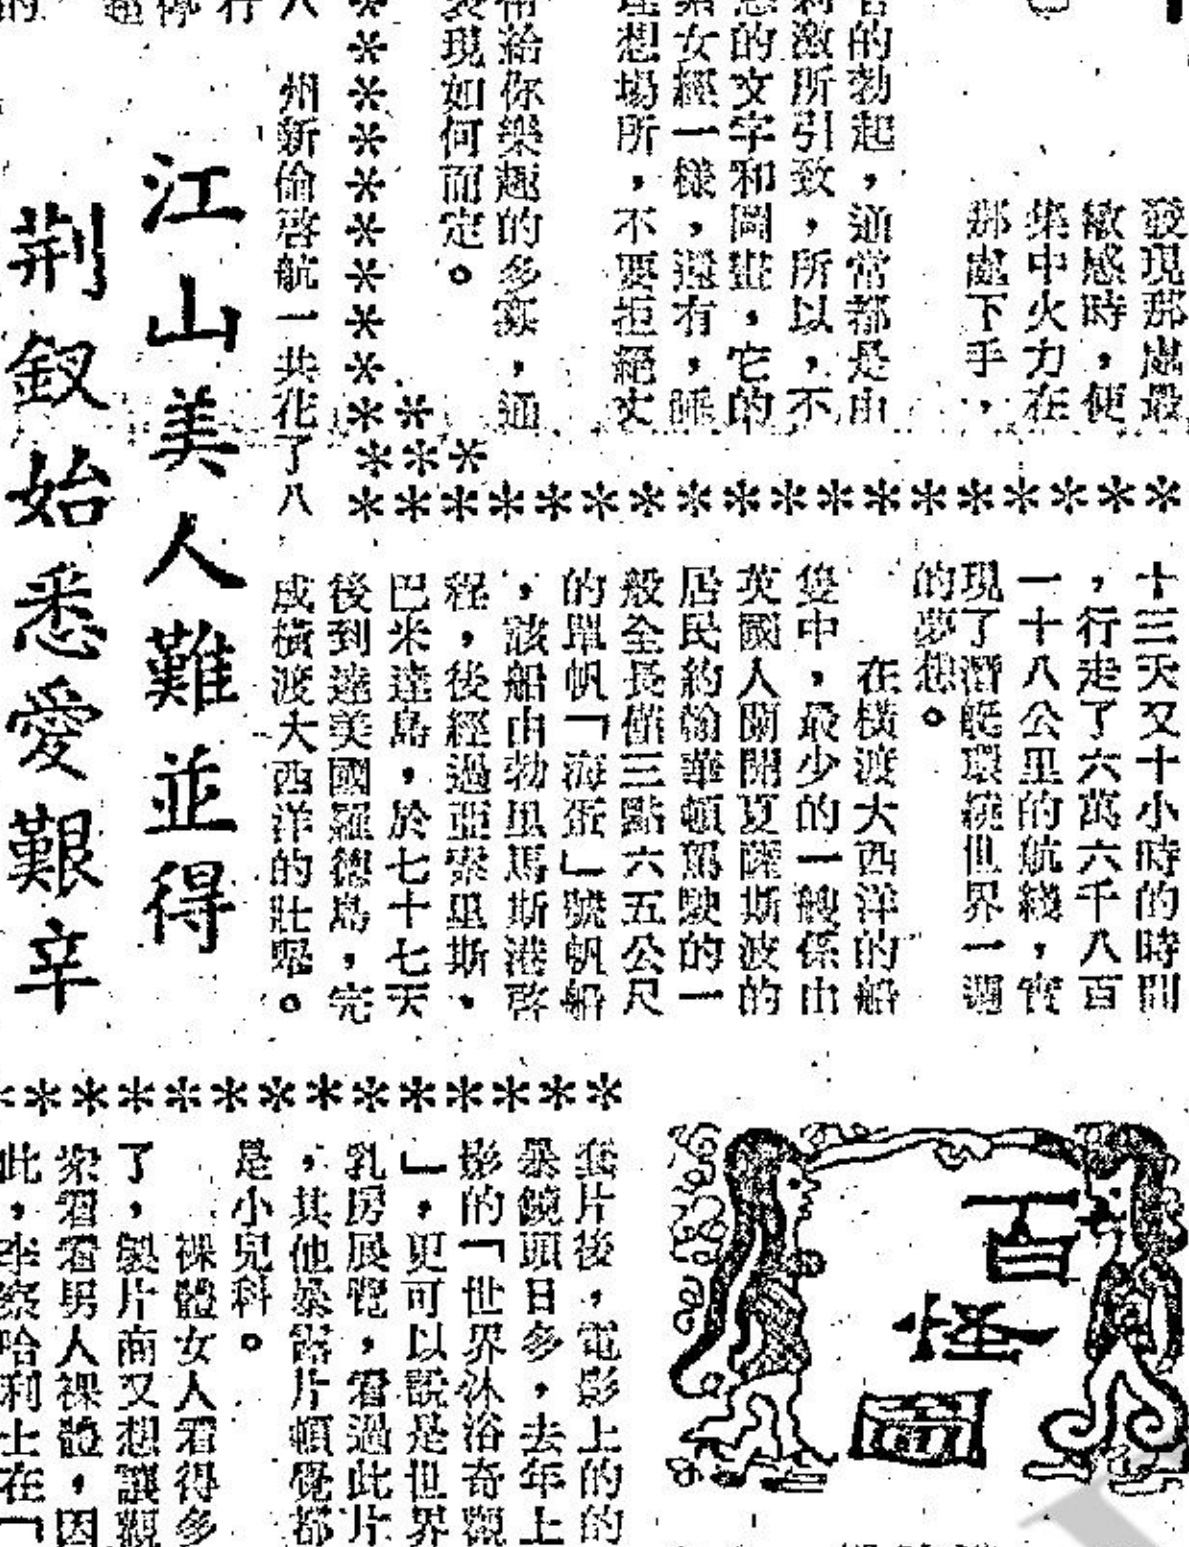 發現那處最
敏感時，便
集中火力在
那處下手，
者的勃起，通常都是由
刺激所引致，所以，不
的文字和圖畫，它的
素女經一樣，還有，睡
理想場所，不要拒絕丈
給你樂趣的多寡，通
表現如何而定。
十三天又十小時的時間
，行走了六萬六千八百
一十八公里的航綫，實
現了潛艇環繞世界一週
的夢想。
在橫渡大西洋的船
隻中，最少的一艘係由
英國人蘭開夏薩斯波的
居民約翰華頓駕駛的一
般全長僅三點六五公尺
的單帆「海蛋」號帆船
，該船由勃里馬斯港啓
程，後經過亞索里斯、
巴米達島，於七十七天
後到達美國羅德島，完
成橫渡大西洋的壯舉。
州新倫啓航一共花了八
江山美人難並得
荆釵始悉愛艱辛
百怪圖
套片後，電影上的的
暴鏡頭日多，去年上
影的「世界沐浴奇觀
」，更可以說是世界
乳房展覽，看過此片
，其他暴露片頓覺都
是小兒科。
裸體女人看得多
了，製片商又想讓觀
衆看看男人裸體，因
此，李察哈利士在「